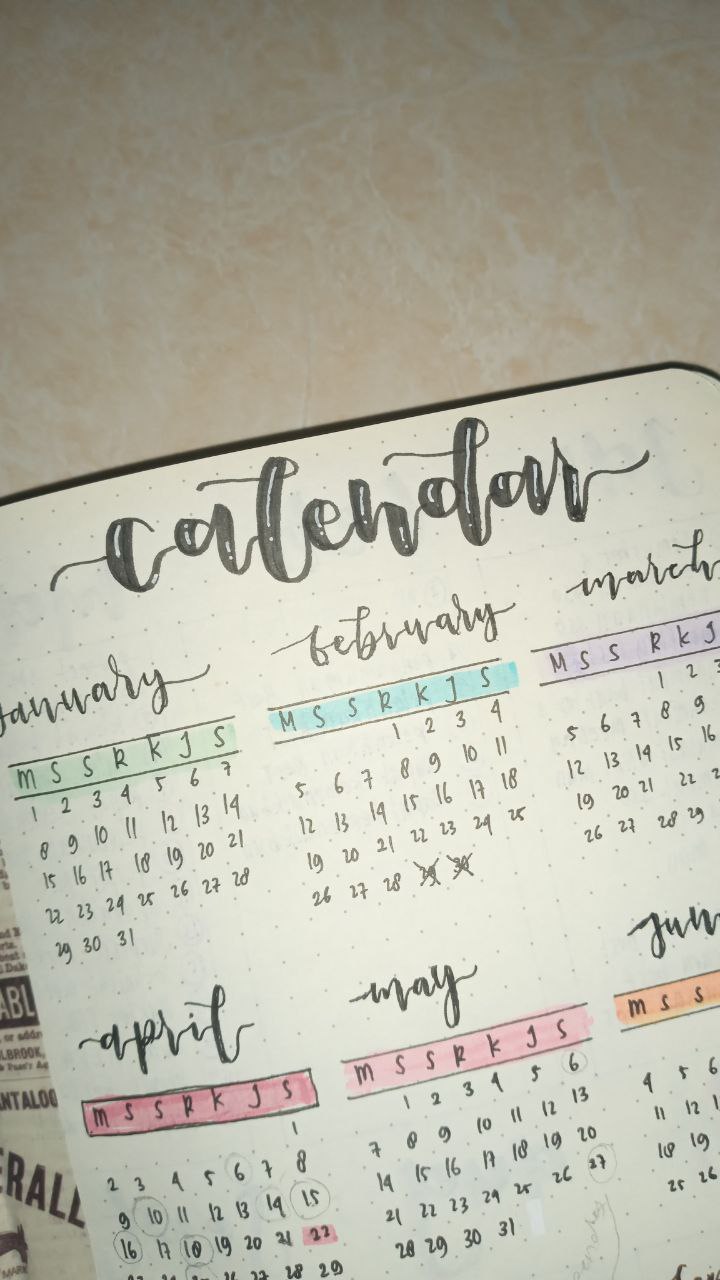 calendar
january
M S S R K J S
1 2 3 4 5 6 7
8 9 10 11 12 13 14
15 16 17 18 19 20 21
22 23 24 25 26 27 28
29 30 31
february
M S S R K J S
1 2 3 4
5 6 7 8 9 10 11
12 13 14 15 16 17 18
19 20 21 22 23 24 25
26 27 28 29 30
march
M S S R K J
1 2 3
5 6 7 8 9
12 13 14 15 16
19 20 21 22
26 27 28 29
april
M S S R K J S
1
2 3 4 5 6 7 8
9 10 11 12 13 14 15
16 17 18 19 20 21 22
26 27 28 29
may
M S S R K J S
1 2 3 4 5 6
7 8 9 10 11 12 13
14 15 16 17 18 19 20
21 22 23 24 25 26 27
28 29 30 31
jun
M S S
4 5 6
11 12
18 19
25 26